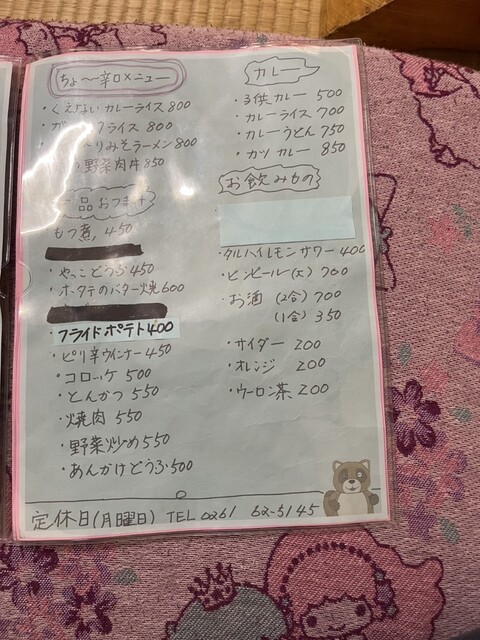 ちょ〜辛口メニュー
・くえないカレーライス 800
ライス 800
りみそラーメン 800
野菜肉丼 850
品おつまみ
もつ煮 450
・やっことうふ 450
・ホタテのバター焼 600
・フライドポテト 400
・ピリ辛ウインナー 450
・コロッケ 500
・とんかつ 550
・焼肉 550
・野菜炒め 550
・あんかけどうふ 500
カレー
・子供カレー 500
・カレーライス 700
・カレーうどん 750
・カツカレー 850
お飲みもの
・タルハイレモンサワー 400
・ビンビール(大) 700
・お酒 (2合) 700
(1合) 350
・サイダー 200
・オレンジ 200
・ウーロン茶 200
定休日(月曜日) TEL 0261 62-5145